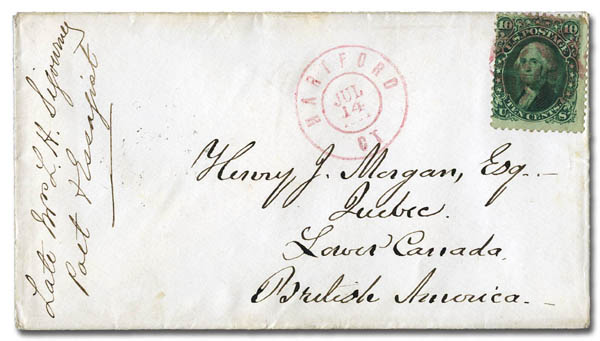 Late Mrs L. H. Sigourney
Poet & Essayist
HARTFORD
JUL
14
CT.
10 10
U.S. POSTAGE
TEN CENTS
Henry J. Morgan, Esq.
Quebec.
Lower Canada,
British America.